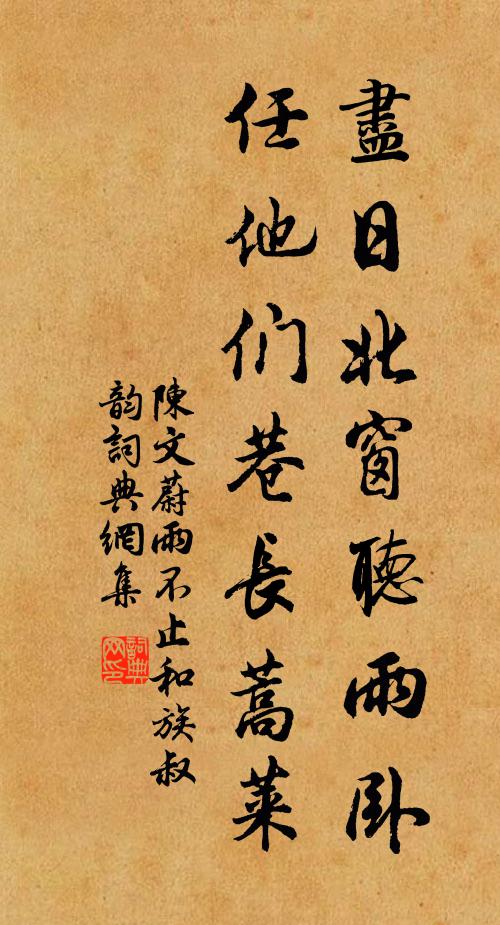 盡日北窗聽雨臥
任他们巷長蒿萊
陳文蔚雨不止和族叔
韵詞典網集
詞典
网印